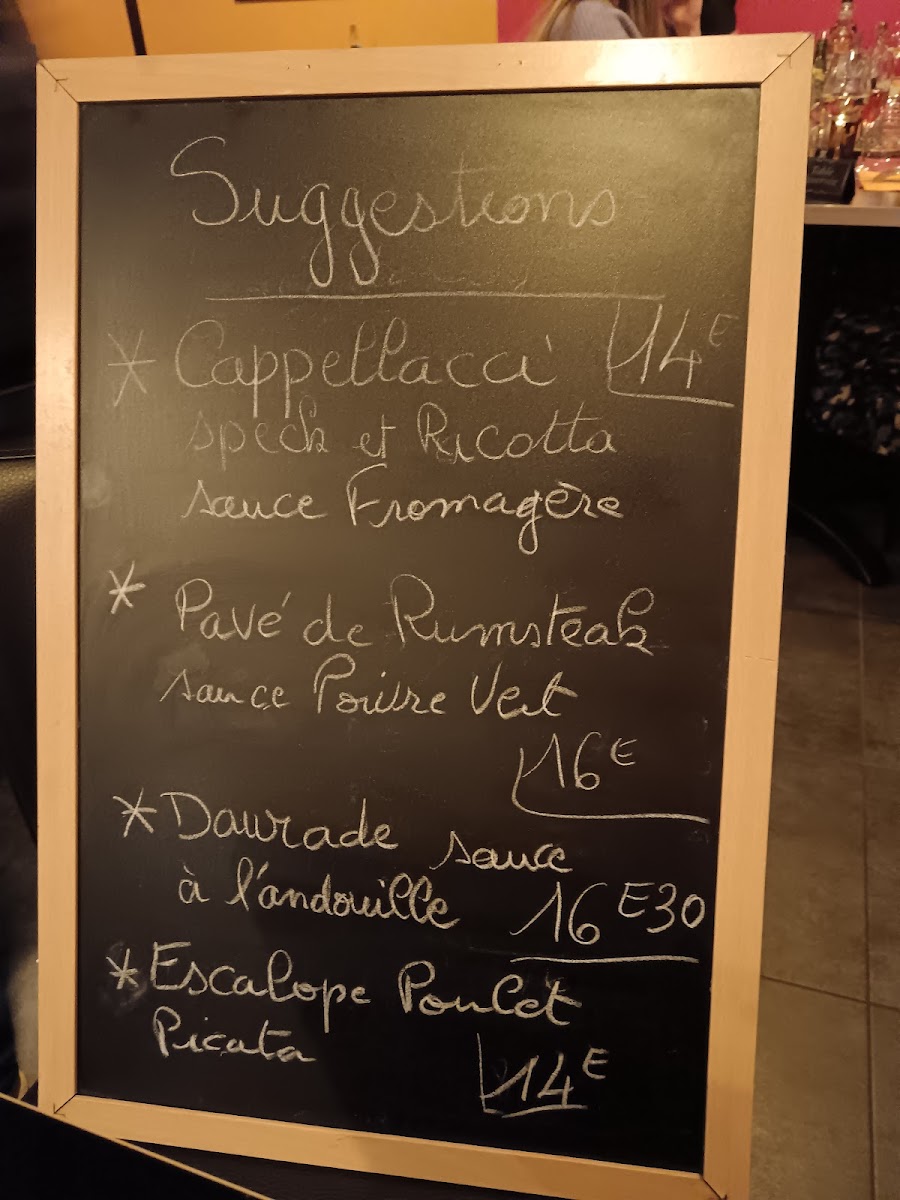 Suggestions
* Cappellacci 14E
speck et Ricotta
sauce Fromagère
* Pavé de Rumsteak
sauce Poivre Vert
16E
* Daurade sauce
à l'andouille 16E30
* Escalope Poulet
Picata
14E